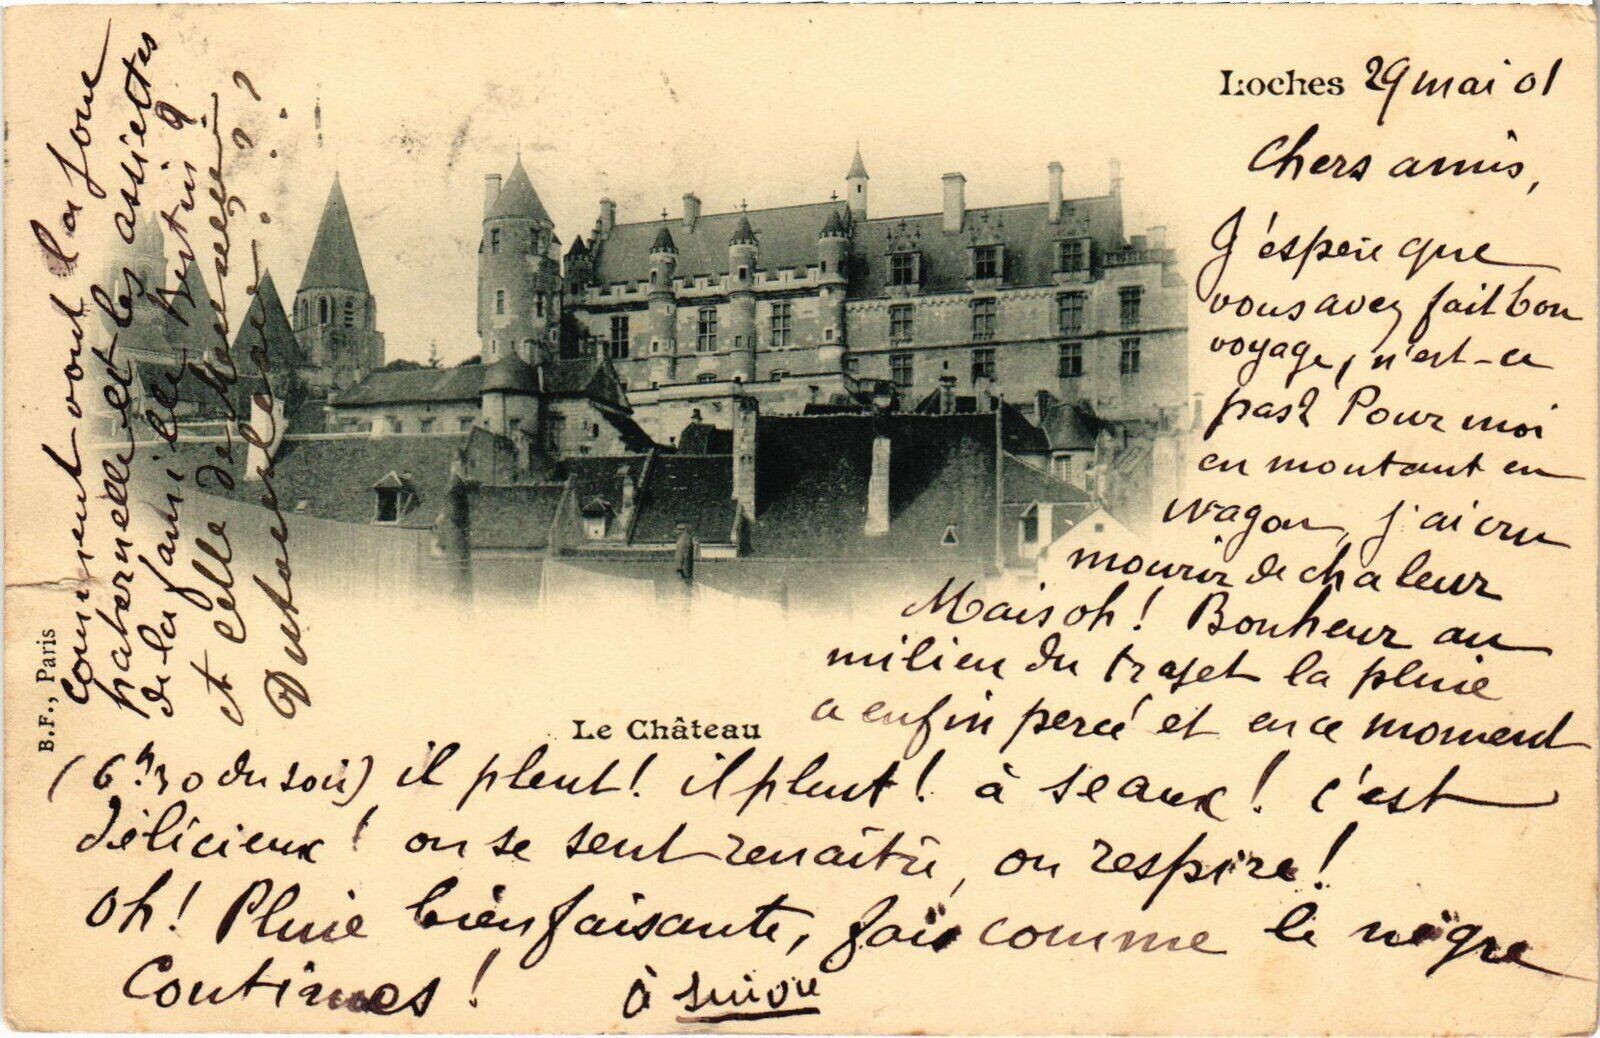 Loches 29 mai 01
Chers amis,
J'espère que
vous avez fait bon
voyage, n'est-ce
pas? Pour moi
en montant en
wagon, j'ai cru
mourir de chaleur
Mais oh! Bonheur au
milieu du trajet la pluie
a enfin percé et en ce moment
(6h 30 du soir) il pleut! il pleut! à seaux! c'est
délicieux! on se sent renaître, on respire!
Oh! Pluie bienfaisante, fais comme le nègre
Continues! à suivre
Le Château
B.F., Paris
Comment vont la joue
paternelle et les assiettes
de la famille Bertin?
et celle de